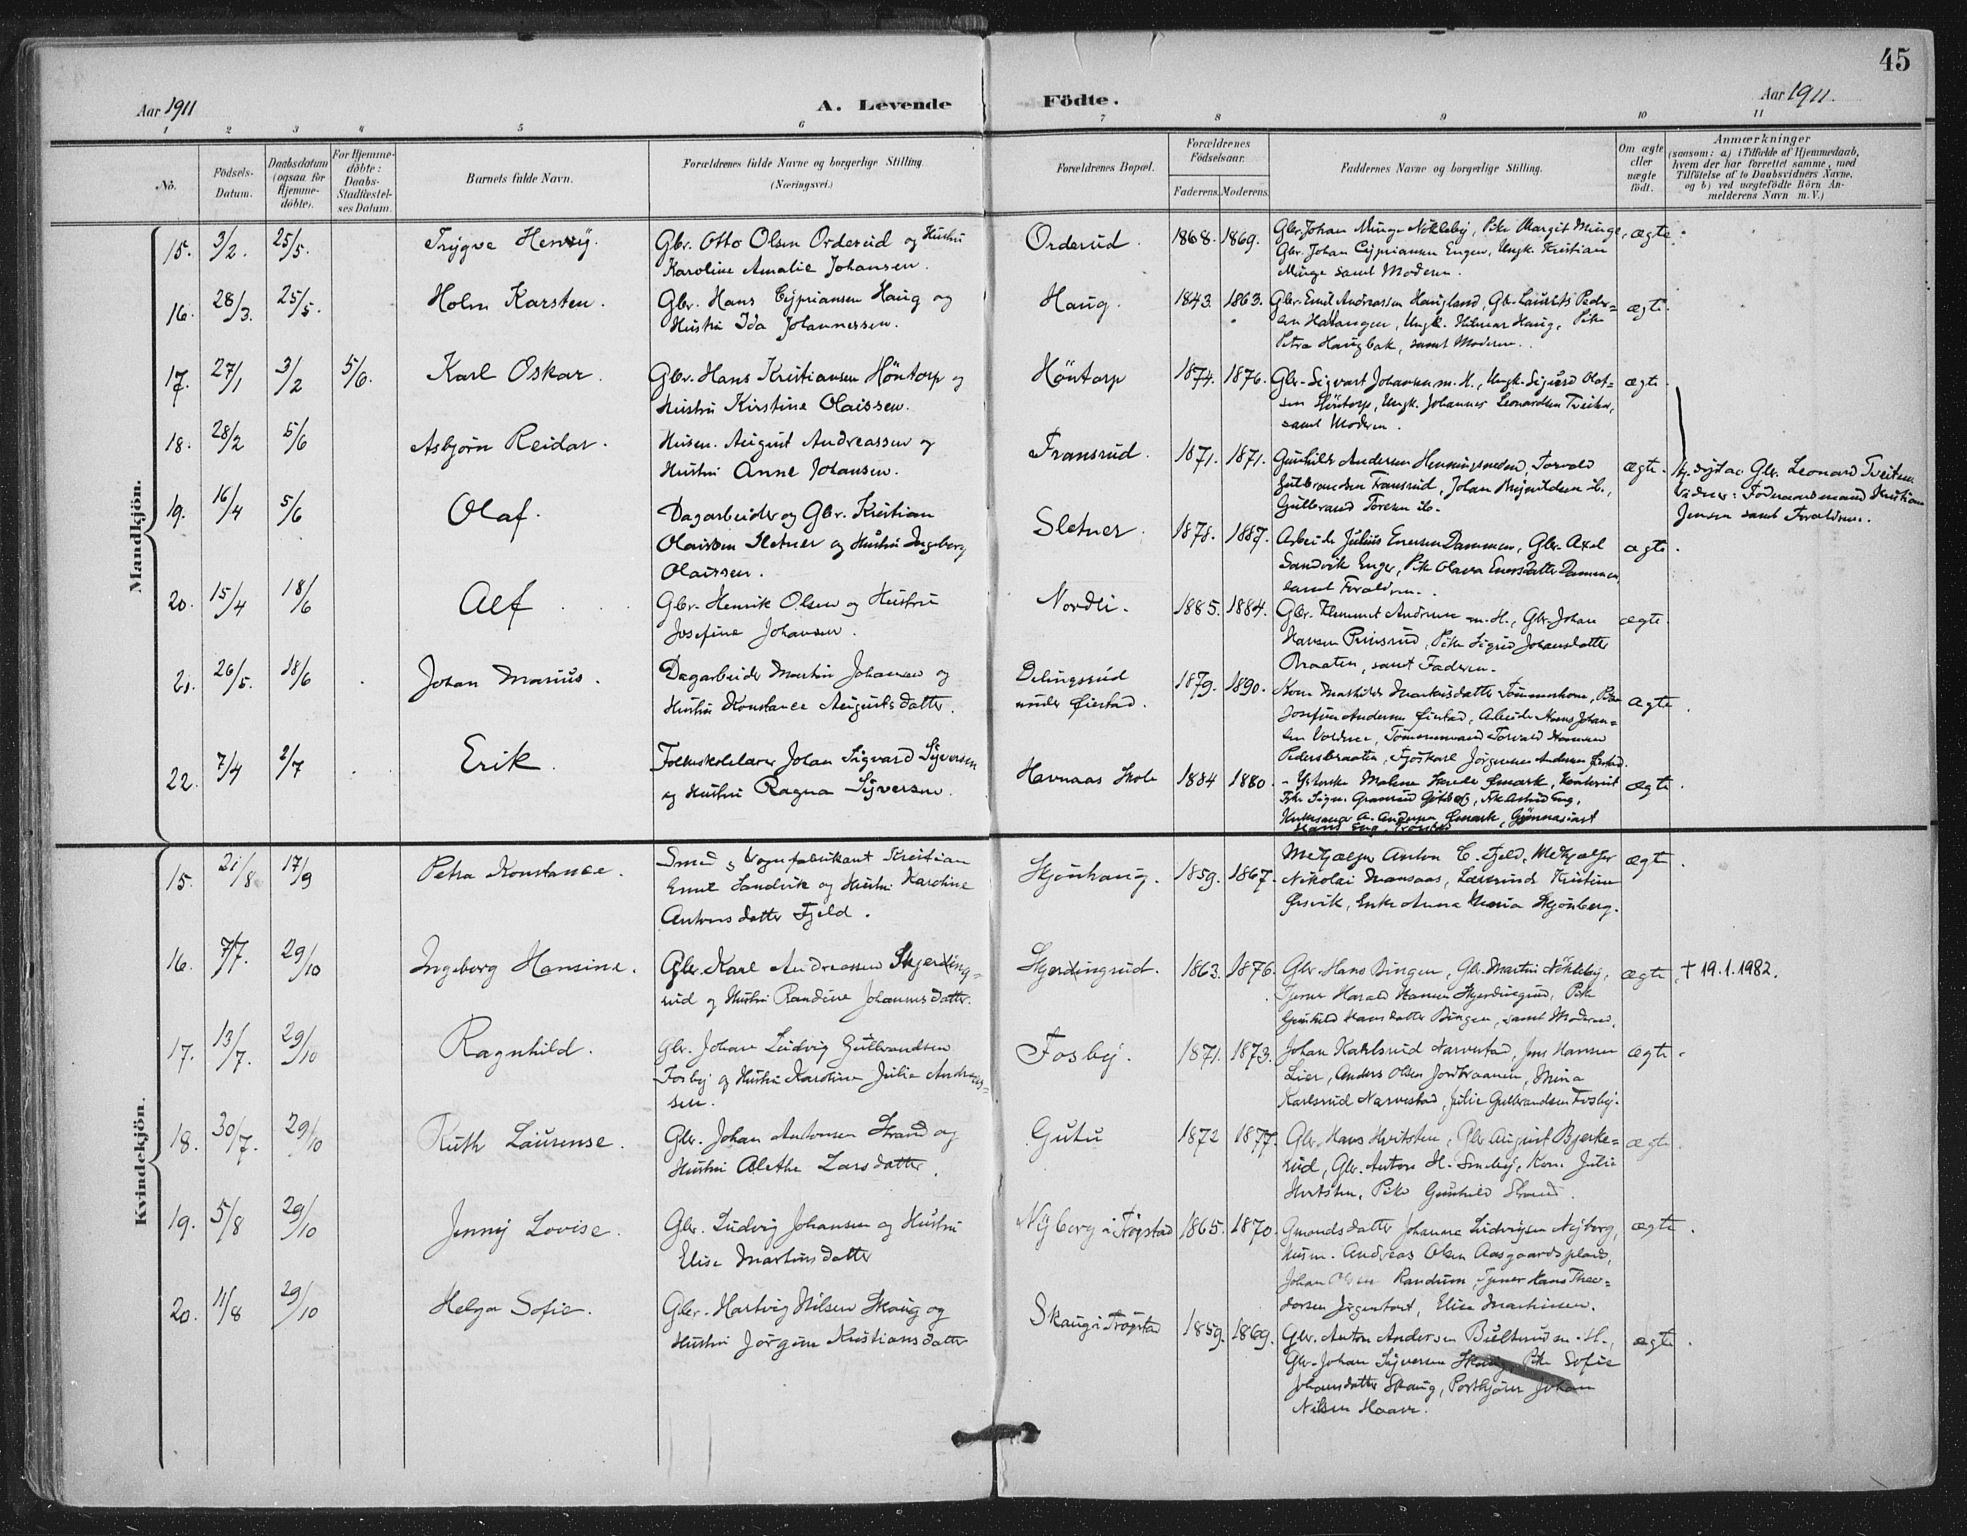 45
Aar 1911
A. Levende Födte.
Aar 1911.
1 2 3 4 5 6 7 8 9 10 11
No.
Födsels-Datum.
Daabsdatum (ogsaa for Hjemme-döbte).
For Hjemme-döbte: Daabs-Stadfæstel-ses Datum.
Barnets fulde Navn.
Forældrenes fulde Navne og borgerlige Stilling.
(Næringsvei.)
Forældrenes Bopæl.
Forældrenes Födselsaar.
Faderens. Moderens.
Faddernes Navne og borgerlige Stilling.
Om ægte eller uægte födt.
Anmærkninger
(saasom: a) i Tilfælde af Hjemmedaab, hvem der har forrettet samme, med Tilföielse af to Daabsvidners Navne, og b) ved uægtefödte Börn An-melderens Navn m. V.)
Mandkjön.
15. 3/2. 25/5. Trygve Henry. Gbr. Otto Olsen Orderud og Hustru
Karoline Amalie Johansen.
Orderud. 1868. 1869. Gbr. Johan Minge Nökleby, Pike Margit Minge,
Gbr. Johan Cyprianssen Enger, Ungk. Kristian
Minge samt Moderen. ægte.
16. 28/3. 25/5. Holm Karsten. Gbr. Hans Cypriansen Haug og
Hustru Ida Johannessen.
Haug. 1843. 1863. Gbr. Emil Andreassen Haugland, Gbr. Laurits Peder-
sen, Ungk. Hilmar Haug, Pike
Petra Haugbak, samt Moderen. ægte.
17. 27/1 3/2 5/6. Karl Oskar. Gbr. Hans Kristiansen Höntorp og
Hustru Kirstine Olaissen.
Höntorp 1874. 1876. Gbr. Sigvart Johansen m. H., Ungk. Sigurd Olaf-
sen Höntorp, Ungk. Johannes Leonardsen Tveiten,
samt Moderen. ægte.
18. 28/2 5/6 Asbjörn Reidar. Husm. August Andreassen og
Hustru Anne Johansen.
Fransrud. 1871. 1871. Gunhild Andersen, Torvald
Gulbrandsen Fransrud, Johan
Gulbrand ægte.
Hj. döbt av Gbr. Leonard Tveiten
Vidner: Föderaadsmand Kristian
Jensen samt Forældrene.
19. 16/4 5/6 Olaf. Dagarbeider og Gbr. Kristian
Olaissen Sletner og Hustru Ingeborg
Olaissen.
Sletner. 1878. 1887. Arbeider Julius Enersen Dammen, Gbr. Axel
Sandvik Enger, Pike Olava Enersdatter Dammen
samt Forældrene. ægte.
20. 15/4 18/6 Alf Gbr. Henrik Olsen og Hustru
Josefine Johansen.
Nordli. 1885. 1884. Gbr. Klemmet Andersen m. H., Gbr. Johan
Hansen Prinsrud, Pike Sigrid Johansdatter
Braaten, samt Faderen. ægte.
21. 26/5. 18/6 Johan Marius. Dagarbeider Martin Johansen og
Hustru Konstance Augustsdatter.
Delingsrud
under Öiestad. 1879. 1890. Kone Mathilde Markusdatter, Pike
Josefine Andersen Öiestad, Arbeider Hans Johan-
sen, Tömmermand Torvald Hansen
Pedersbraaten, Jörgensen Andersen ægte.
22. 7/4 2/7 Erik. Folkeskolelærer Johan Sigvard Syversen
og Hustru Ragna Syversen.
Havnaas Skole 1884 1880. Malene Ömark,
Frk. Signe, Frk. Astrid Eng,
A. Andersen Ömark, Gymnasiast
Hans Eng, Trögstad ægte.
Kvindekjön.
15. 21/8 17/9 Petra Konstance. Smed & Vognfabrikant Kristian
Emil Sandvik og Hustru Karoline
Antonsdatter Fjeld.
Skjönhaug. 1859. 1867. Methjælper Anton C. Fjeld, Methjælper
Nikolai Mansaas, Kristine
Örsvik, Enke Anna Maria Skjönberg. ægte.
16. 7/7. 29/10 Ingeborg Hansine. Gbr. Karl Andreassen Skjerding-
rud og Hustru Randine Johannesdatter.
Skjerdingrud. 1863. 1876. Gbr. Hans Bingen, Gbr. Martin Nökleby,
Tjener Harald Hansen Skjerdingrud, Pike
Gunhild Hansdatter Bingen, samt Moderen. ægte. † 19.1.1982.
17. 13/7. 29/10 Ragnhild. Gbr. Johan Ludvig Gulbrandsen
Fosby og Hustru Karoline Julie Andreas-
sen.
Fosby. 1871. 1873. Johan Karlsrud Narvestad, Jens Hansen
Lier, Anders Olsen Jordbraaten, Mina
Karlsrud Narvestad, Julie Gulbrandsen Fosby. ægte.
18. 30/7. 29/10 Ruth Laurense. Gbr. Johan Antonsen Strand og
Hustru Alethe Larsdatter.
Gutu 1872 1877. Gbr. Hans Hvitsten, Gbr. August Bjerke-
rud, Gbr. Anton H. Smeby, Kone Julie
Hvitsten, Pike Gunhild Strand. ægte.
19. 5/8 29/10 Jenny Lovise. Gbr. Ludvig Johansen og Hustru
Elise Martinsdatter
Nyborg i Trögstad 1865. 1870. Gmandsdatter Johanne Ludvigsen Nyborg,
Husm. Andreas Olsen Aasgaardsplads,
Johan Olsen Randum, Tjener Hans Theo-
dorsen, Elise Martinsen. ægte.
20. 11/8 29/10 Helga Sofie. Gbr. Hartvig Nilsen Skaug og
Hustru Jörgine Kristiansdatter
Skaug i Trögstad 1859. 1869. Gbr. Anton Andersen Bulterud m. H.,
Gbr. Johan Syversen Skaug, Pike Sofie
Johansdatter Skaug, Postkjörer Johan
Nilsen Haave. ægte.